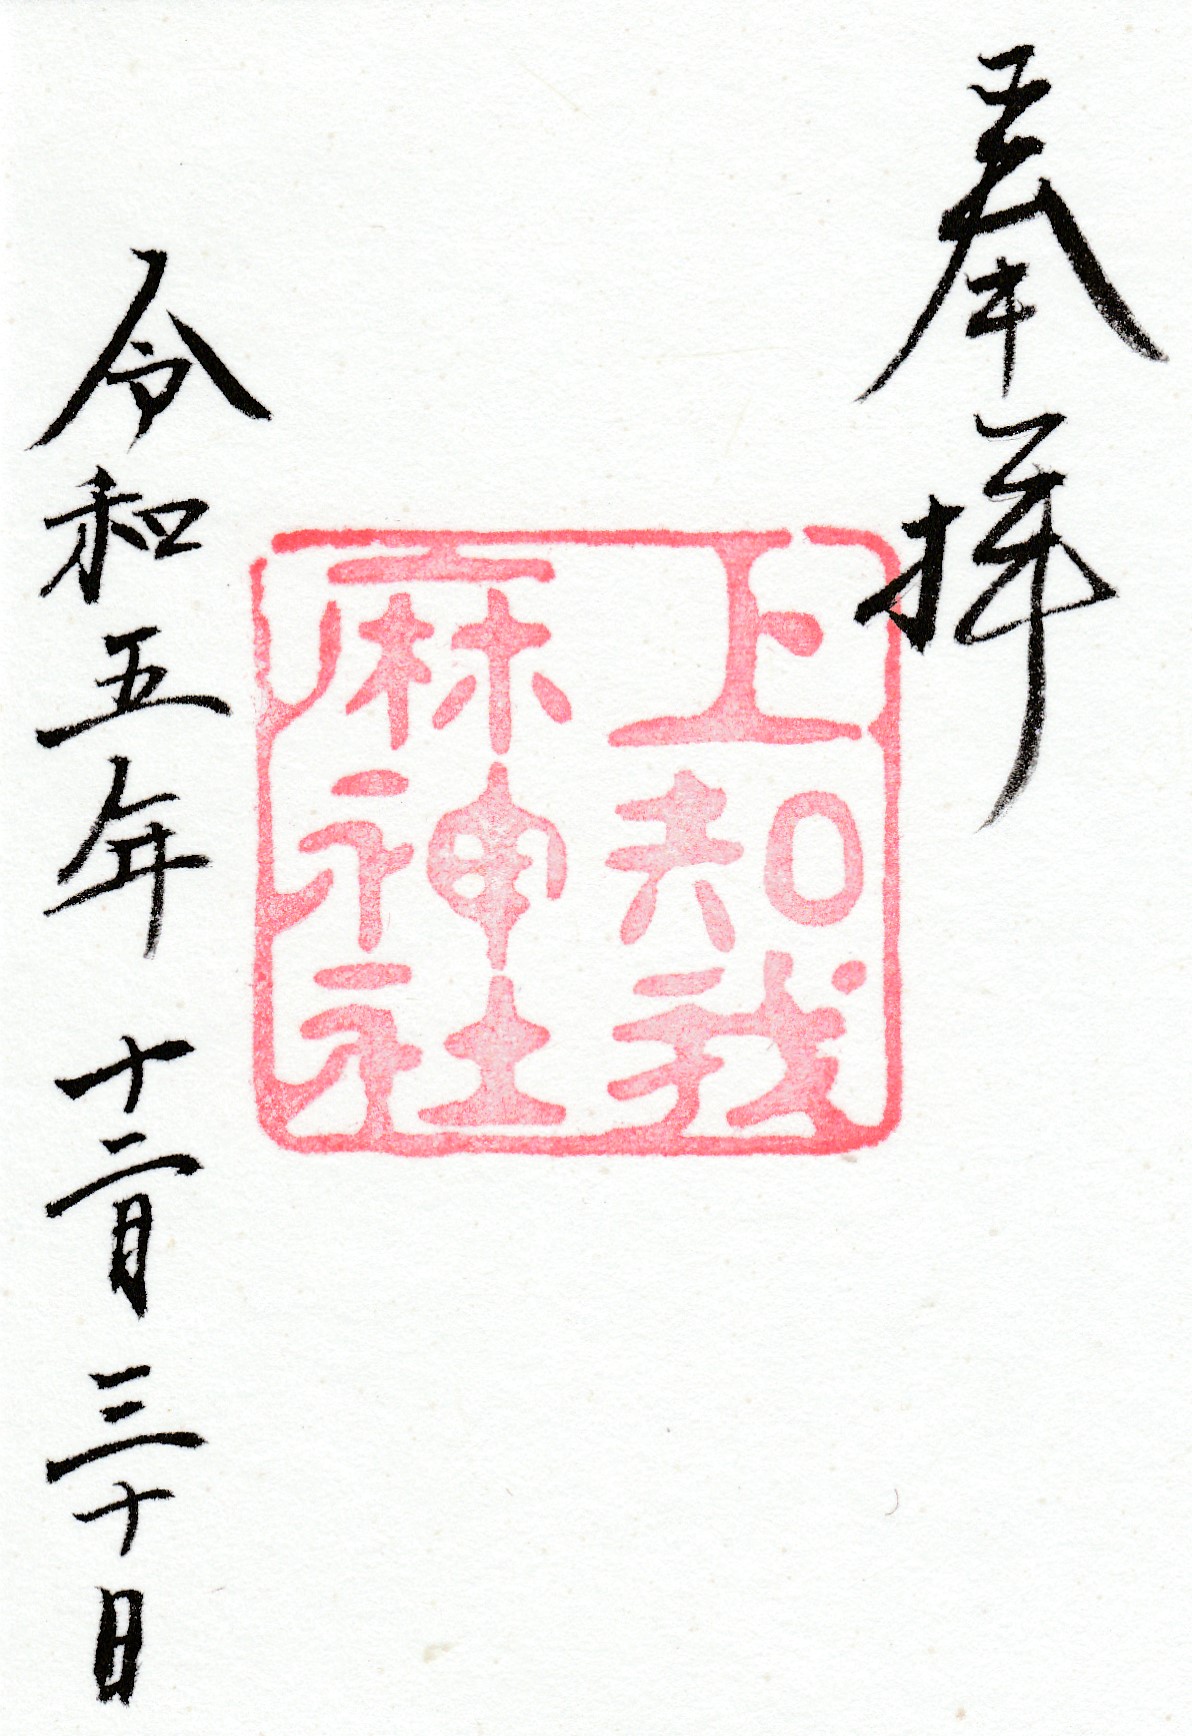 奉拝
上知我
麻神社
令和五年 十二月 三十日